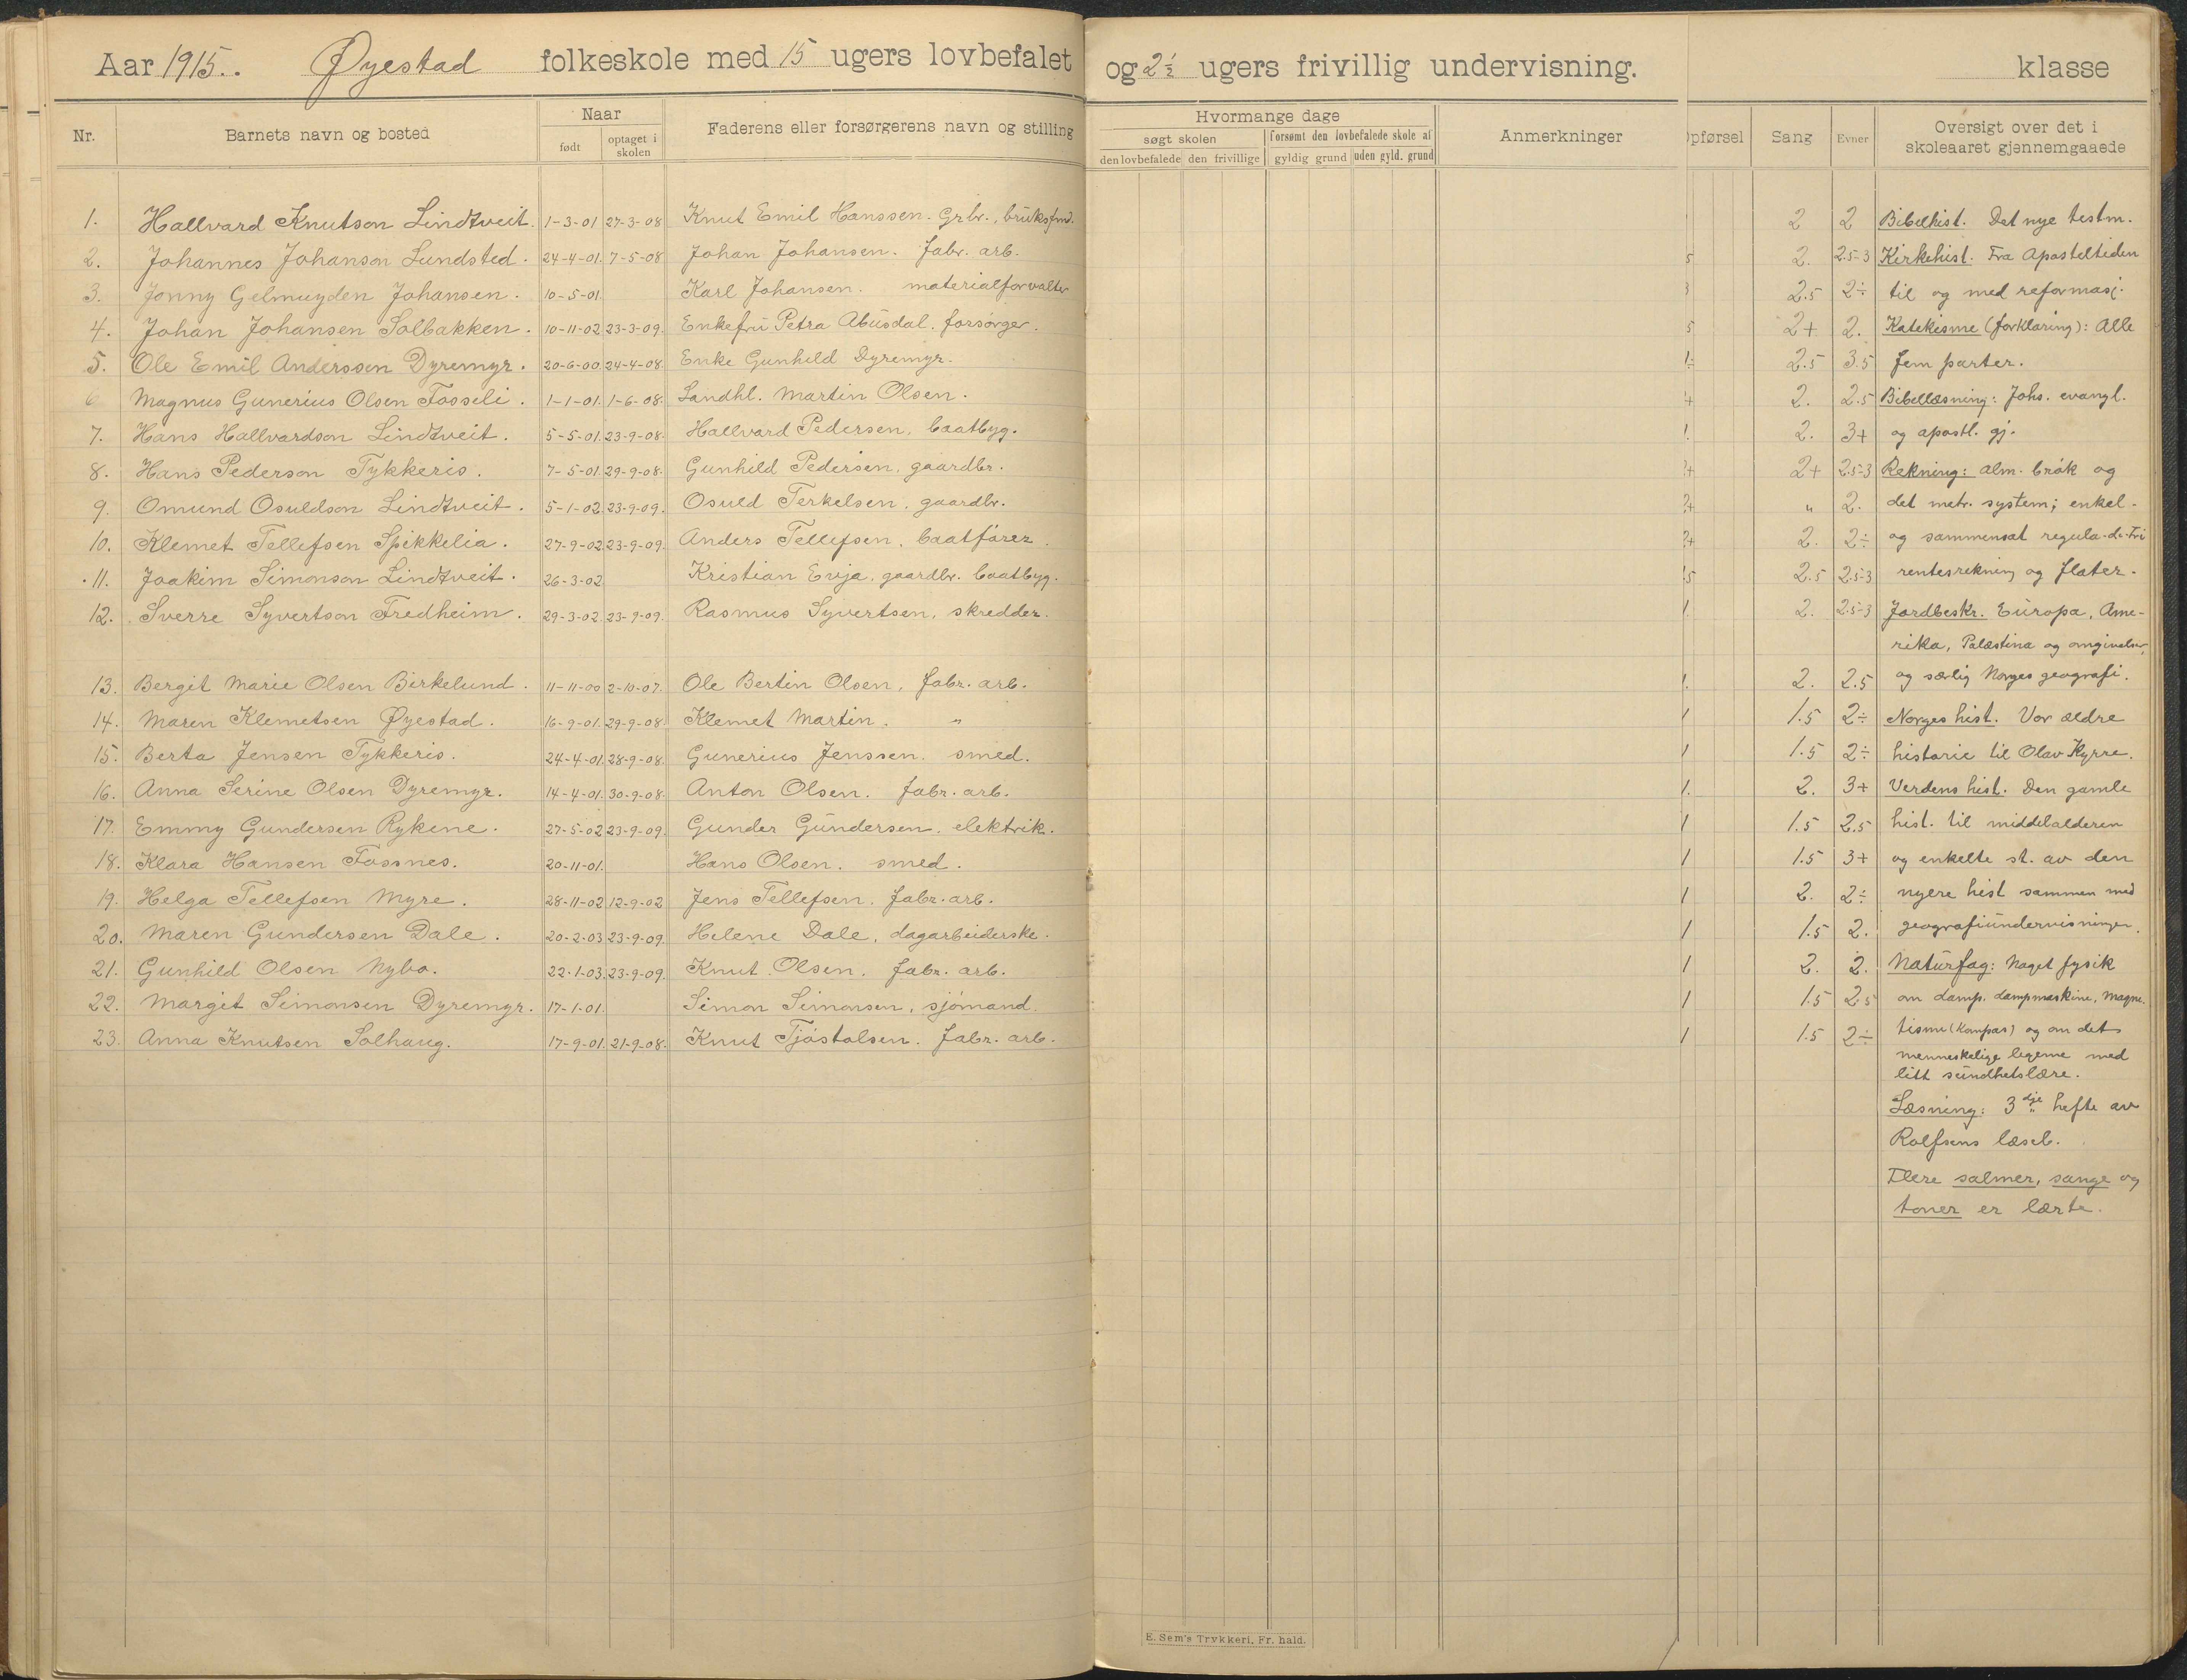 Aar 1915. Øyestad folkeskole med 15 ugers lovbefalet og 2½ ugers frivillig undervisning. klasse
Nr. Barnets navn og bosted Naar født optaget i skolen Faderens eller forsørgerens navn og stilling
Hvormange dage søgt skolen forsømt den lovbefalede skole af Anmerkninger pførsel Sang Evner Oversigt over det i skoleaaret gjennemgaaede
den lovbefalede den frivillige gyldig grund uden gyld. grund
1. Hallvard Knutson Lindtveit. 1-3-01 27-3-08 Knut Emil Hanssen. Grbr., bruksfmd. 2 2
2. Johannes Johanson Lundsted. 24-4-01. 7-5-08 Johan Johansen. fabr. arb. 5 2. 2.5-3
3. Jonny Gelmuyden Johansen. 10-5-01. Karl Johansen. materialforvalter 2.5 2÷
4. Johan Johansen Solbakken. 10-11-02 23-3-09. Enkefru Petra Abusdal. forsørger. 5 2+ 2.
5. Ole Emil Anderssen Dyremyr. 20-6-00 24-4-08. Enke Gunhild Dyremyr. 2.5 3.5
6 Magnus Gunerius Olsen Fosseli. 1-1-01. 1-6-08. Landhl. Martin Olsen. 2. 2.5
7. Hans Hallvardson Lindtveit. 5-5-01. 23-9-08. Hallvard Pedersen, baatbyg. 2. 3+
8. Hans Pederson Tykkeris. 7-5-01. 29-9-08. Gunhild Pedersen, gaardbr. 2+ 2.5-3
9. Omund Osuldson Lindtveit. 5-1-02. 23-9-09. Osuld Terkelsen. gaardbr. " 2.
10. Klemet Tellefsen Spikkelia. 27-9-02 23-9-09. Anders Tellefsen, baatfører. 2. 2÷
11. Joakim Simonson Lindtveit. 26-3-02 Kristian Evja, gaardbr. baatbyg. 2.5 2.5-3
12. Sverre Syvertson Fredheim. 29-3-02. 23-9-09. Rasmus Syvertsen, skredder. 2. 2.5-3
13. Bergit Marie Olsen Birkelund. 11-11-00 2-10-07. Ole Bertin Olsen, fabr. arb. 1. 2. 2.5
14. Maren Klemetsen Øyestad. 16-9-01. 29-9-08. Klemet Martin. " 1 1.5 2÷
15. Berta Jensen Tykkeris. 24-4-01. 28-9-08. Gunerius Jenssen. smed. 1 1.5 2÷
16. Anna Serine Olsen Dyremyr. 14-4-01. 30-9-08. Anton Olsen. fabr. arb. 1. 2. 3+
17. Emmy Gundersen Rykene. 27-5-02 23-9-09. Gunder Gundersen. elektrik. 1 1.5 2.5
18. Klara Hansen Fossnes. 20-11-01. Hans Olsen. smed. 1 1.5 3+
19. Helga Tellefsen Myre. 28-11-02 12-9-02 Jens Tellefsen, fabr. arb. 1 2. 2÷
20. Maren Gundersen Dale. 20-2-03 23-9-09. Helene Dale, dagarbeiderske. 1 1.5 2.
21. Gunhild Olsen Nybo. 22-1-03. 23-9-09. Knut Olsen. fabr. arb. 1 2. 2.
22. Margit Simonsen Dyremyr. 17-1-01. Simon Simonsen, sjømand. 1 1.5 2.5
23. Anna Knutsen Solhaug. 17-9-01. 21-9-08. Knut Tjøstolsen. fabr. arb. 1 1.5 2÷
Bibelhist. Det nye testm.
Kirkehist. Fra Aposteltiden
til og med reformasj.
Katekisme (forklaring): Alle
fem parter.
Bibellæsning: Johs. evangl.
og apostl. gj.
Rekning: alm. brøk og
det metr. system; enkel-
og sammensat regula-de-tri
rentesrekning og flater.
Jordbeskr. Europa, Ame-
rika, Palæstina og omgivelser,
og særlig Norges geografi.
Norges hist. Vor ældre
historie til Olav Kyrre.
Verdens hist. Den gamle
hist. til middelalderen
og enkelte st. av den
nyere hist sammen med
geografiundervisningen.
Naturfag: Noget fysik
om damp. dampmaskine, magne-
tisme (Kompas) og om det
menneskelige legeme med
litt sundhetslære.
Læsning: 3dje hefte av
Rolfsens læseb.
Flere salmer, sange og
toner er lærte.
E. Sem's Trykkeri, Fr. hald.